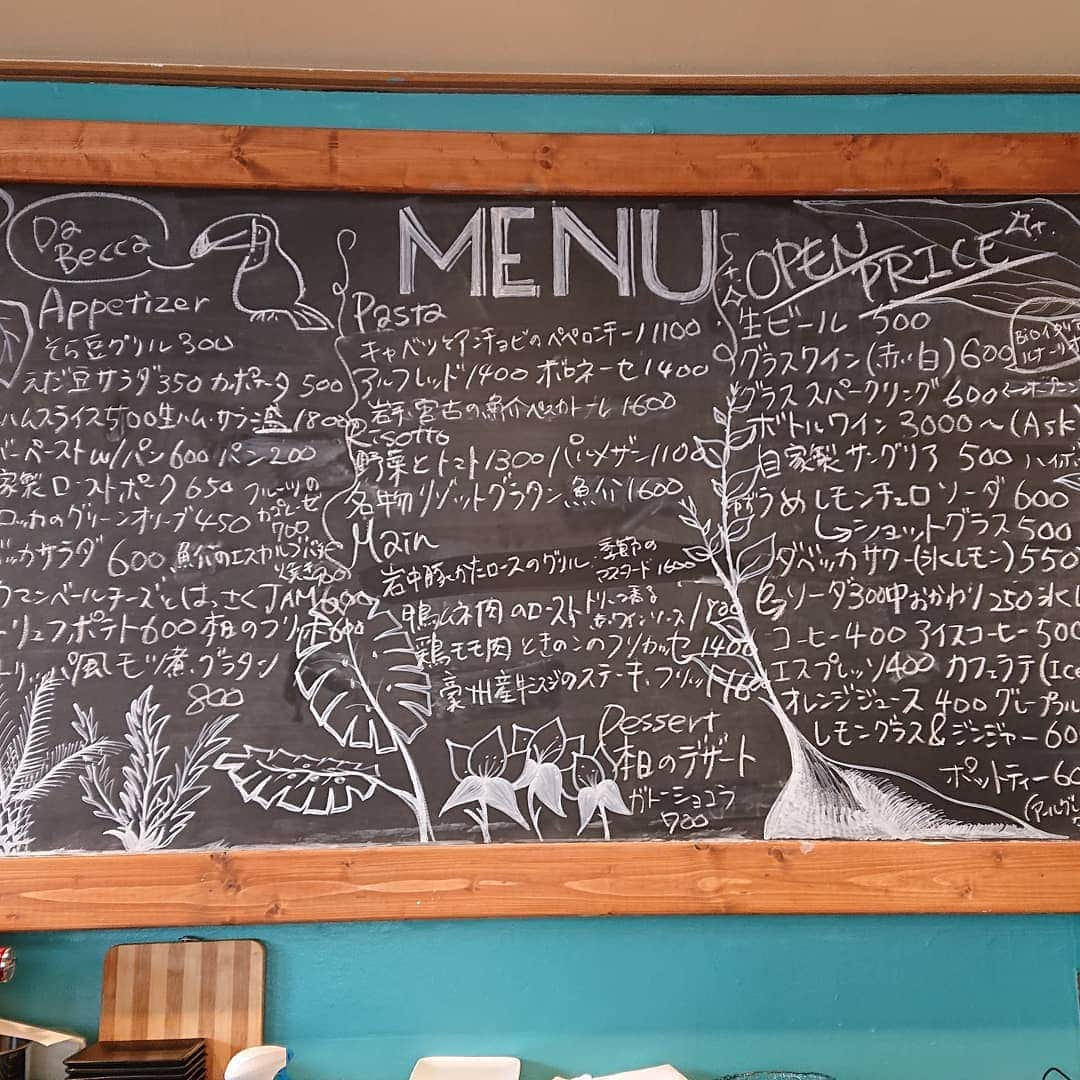 Da
Becca
MENU
Appetizer
そら豆グリル 300
えだ豆サラダ350 カポナータ 500
ハムスライス500 生ハム・サラミ盛 1800
バーペースト w/パン 600 パン 200
家製ローストポーク 650 フルーツの
カプレーゼ
700
ロッカのグリーンオリーブ450
ベッカサラダ 600 魚介のエスカルゴバター
焼き
マンベールチーズとはっさくJAM 600
トリュフポテト600 本日のフリット600
風モツ煮グラタン
800
Pasta
キャベツとアンチョビのペペロンチーノ1100
アルフレッド1400 ボロネーゼ 1400
岩手・宮古の魚介ペスカトーレ 1600
Risotto
野菜とトマト1300 パルメザン1100
名物リゾットグラタン 魚介1600
Main
岩中豚かたロースのグリル 季節の
マスタード 1600
鴨ムネ肉のロースト トリュフ香る
赤ワインソース1800
鶏モモ肉ときのこのフリカッセ 1400
豪州産牛スジのステーキ、フリット 1600
Dessert
本日のデザート
ガトーショコラ
700
OPEN PRICE
生ビール 500
グラスワイン(赤、白)600
Bioイタリア
グラススパークリング 600
ボトルワイン 3000~(Ask
自家製サングリア 500 ハイボ
うめレモンチェロソーダ 600
ショットグラス 500
ダベッカサワー(氷レモン)550
ソーダ300 中おかわり250 氷レ
コーヒー400 アイスコーヒー500
エスプレッソ400 カフェラテ(Ice
オレンジジュース 400 グレープフル
レモングラス&ジンジャー 60
ポットティー60
(アールグレ